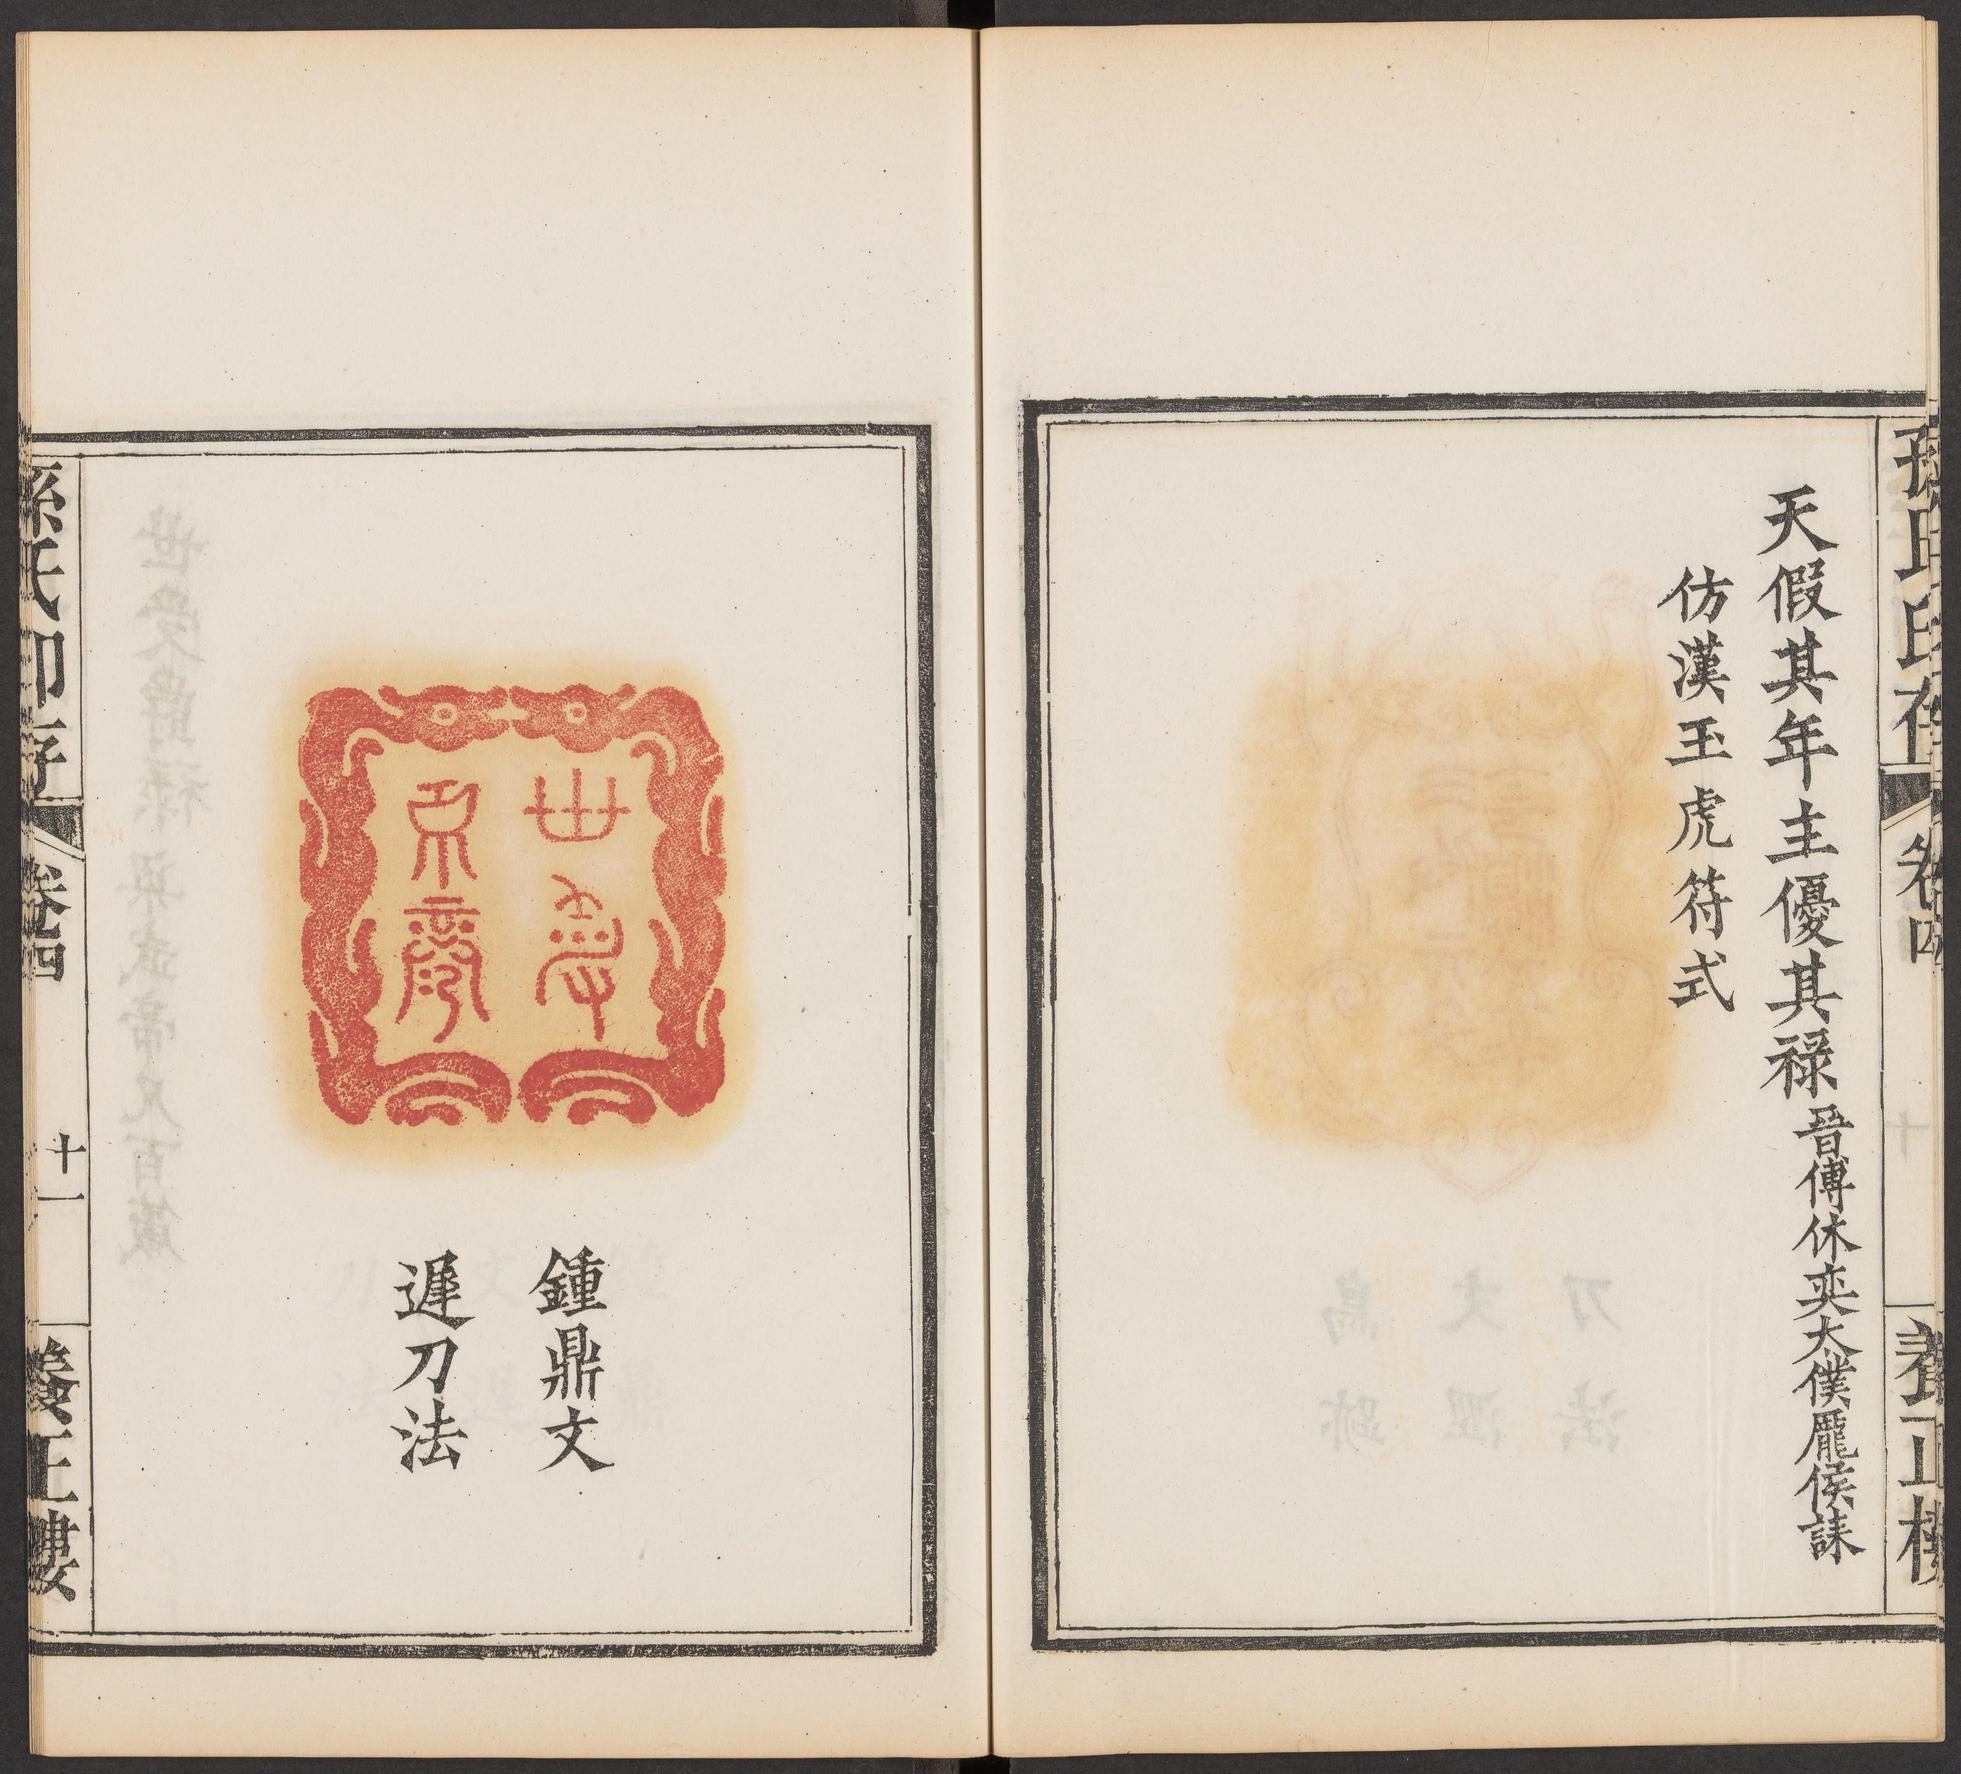 天假其年主優其祿晉傅休奕太僕龐侯誄
仿漢玉虎符式
孫氏印存
卷四
養正樓
鍾鼎文
遲刀法
孫氏印存
卷四
十一
養正樓